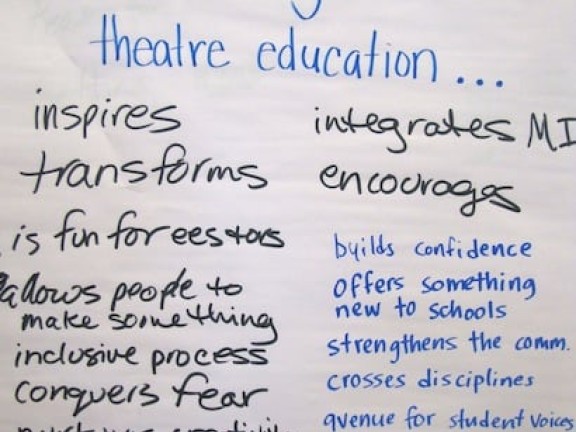 theatre education...
inspires
transforms
is fun for
allows people to
make something
inclusive process
conquers fear
integrates MI
encourages
builds confidence
offers something
new to schools
strengthens the comm.
crosses disciplines
avenue for student voices